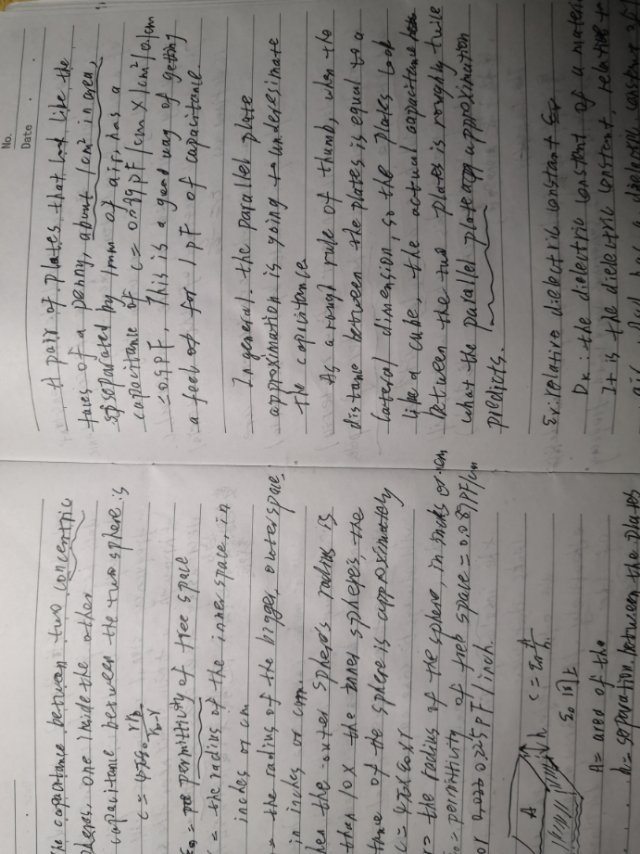 The capacitance between two concentric
spheres. one inside the other
capacitance between the two sphere is
C = 4πε0 r rb / rb-r
ε0 = permittivity of free space
= the radius of the inner space, in
inches or cm
= the radius of the bigger, outer space
in inches or cm.
when the outer sphere's radius is
than 10x the inner sphere's the
tance of the sphere is approximately
C = 4πε0 x r
r = the radius of the sphere, in inches or cm
= permittivity of free space = 0.089 pF/cm
or 0.225 pF/inch.
A
h
C = ε0 A/h
ε0
A = area of the
h = separation between the plates
No.
Date
A pair of plates that look like the
faces of a penny, about 1cm² in area,
separated by 1mm of air, has a
capacitance of C = 0.089 pF/cm x 1cm²/0.1cm
= 0.9 pF. This is a good way of geting
a feel of for 1 pF of capacitance.
In general. the parallel plate
approximation is going to underesimate
the capacitance
As a rough rule of thumb, when the
distance between the plates is equal to a
lateral dimension, so the plates look
like a cube, the actual capacitance
between the two plates is roughly twice
what the parallel plate approximation
predicts.
εr: relative dielectric constant
Dk: the dielectric constant of a materi
It is the dielectric constant, relative to
air, which has a dielectric constant of 1